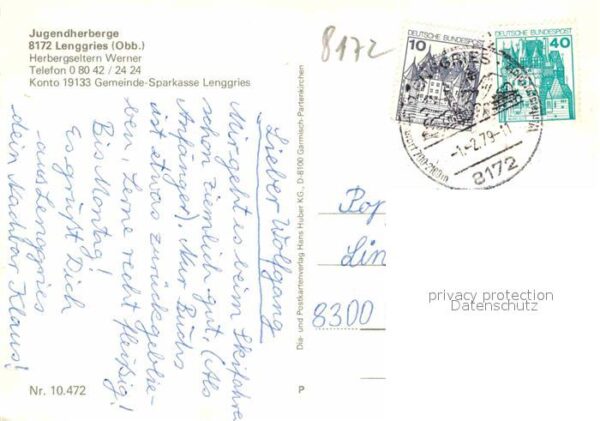 Jugendherberge
8172 Lenggries (Obb.)
Herbergseltern Werner
Telefon 0 80 42 / 24 24
Konto 19133 Gemeinde-Sparkasse Lenggries
8172
DEUTSCHE BUNDESPOST
10
DEUTSCHE BUNDESPOST
40
LENGGRIES
-1.-2.79-11
8172
Lieber Wolfgang
Mir geht es beim Skifahre
schon ziemlich gut. (Als
Anfänger). Nur Buchs
ist etwas zurückgeblie-
ben, Lerne recht fleißig!
Bis Montag!
Es grüßt Dich
aus Lenggries
dein Nachbar Klaus!
Dia- und Postkartenverlag Hans Huber KG., D-8100 Garmisch-Partenkirchen
Pop
Lin
8300
privacy protection
Datenschutz
Nr. 10.472
P